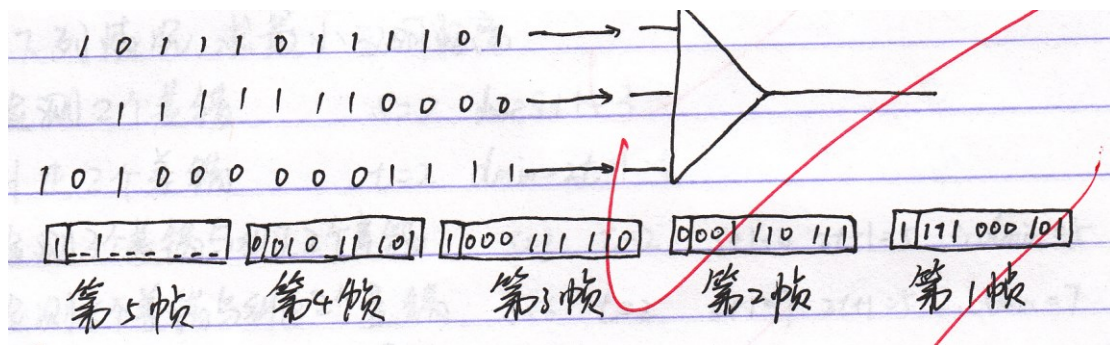 1 0 1 1 1 0 1 1 1 1 0 1
1 1 1 1 1 1 1 0 0 0 0
1 0 1 0 0 0 0 0 0 1 1 1 1
1 _ _ 1 _ _ _ _ _ _ 0 010 _11 101 1 000 111 110 0 001 110 111 1 111 000 101
第5帧 第4帧 第3帧 第2帧 第1帧